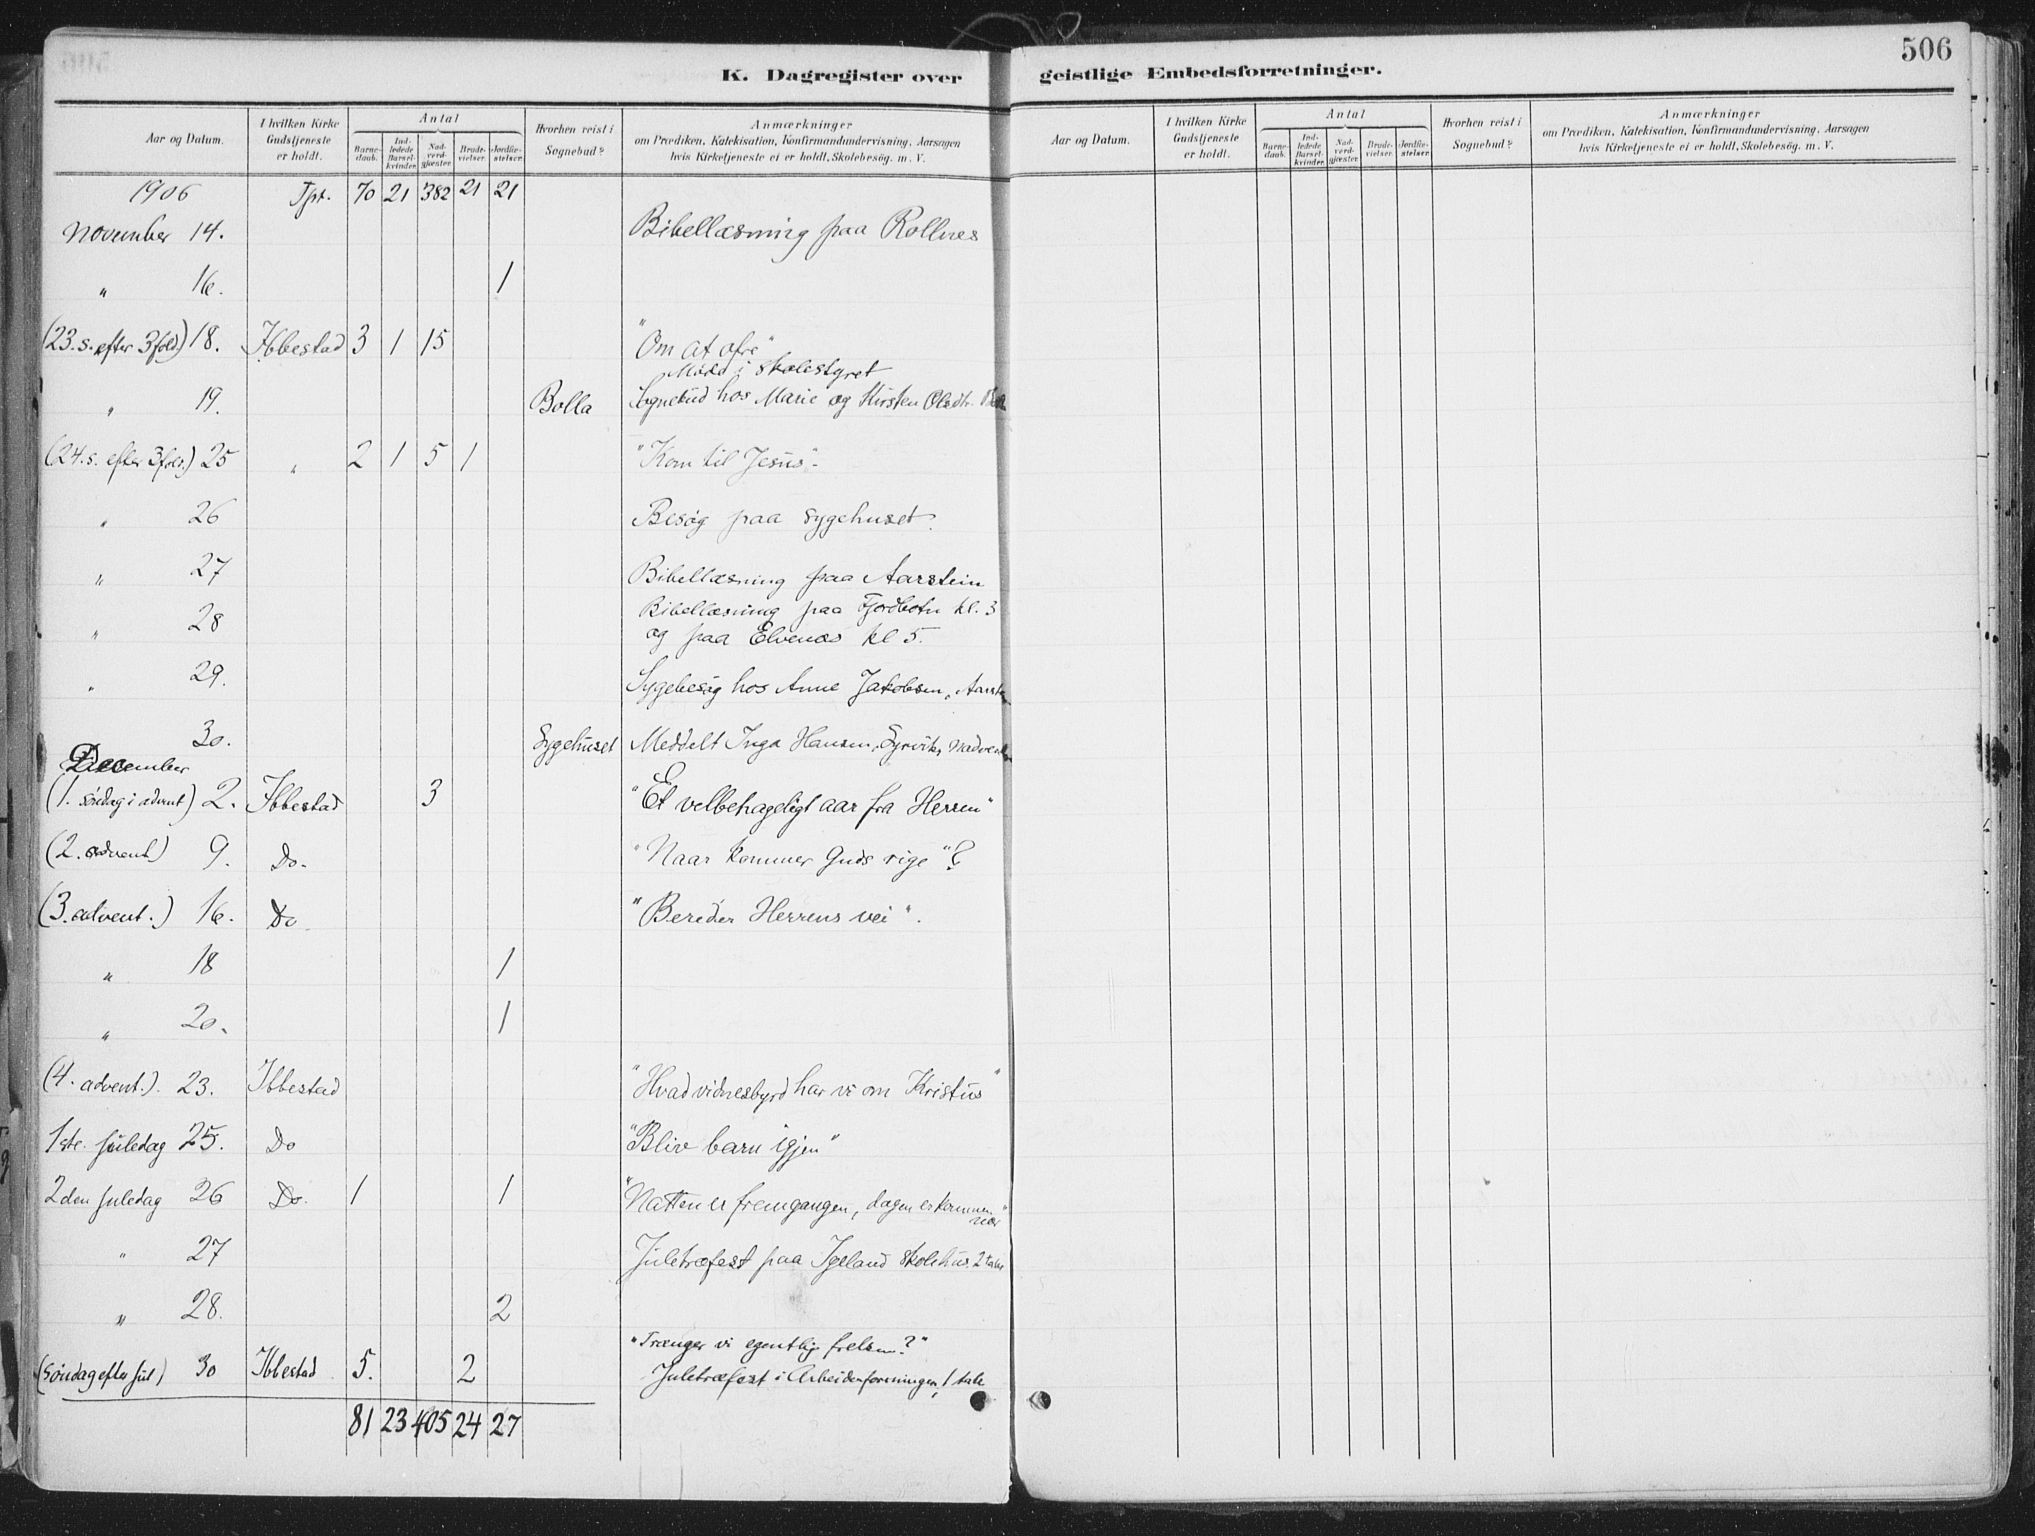 506
K. Dagregister over geistlige Embedsforretninger.
Aar og Datum. I hvilken Kirke Gudstjeneste er holdt. Antal Barnedaab. Indledede Barselkvinder. Nadverdgjæster. Brudevielser. Jordfæstelser. Hvorhen reist i Sognebud? Anmærkninger om Prædiken, Katekisation, Konfirmandundervisning, Aarsagen hvis Kirketjeneste ei er holdt, Skolebesög. m. V.
Aar og Datum. I hvilken Kirke Gudstjeneste er holdt. Antal Barnedaab. Indledede Barselkvinder. Nadverdgjæster. Brudevielser. Jordfæstelser. Hvorhen reist i Sognebud? Anmærkninger om Prædiken, Katekisation, Konfirmandundervisning, Aarsagen hvis Kirketjeneste ei er holdt, Skolebesög. m. V.
1906 Tpt. 70 21 382 21 21
November 14. Bibellæsning paa Rollnes
" 16. 1
(23. s. efter 3fold.) 18. Ibbestad 3 1 15 "Om at ofre"
Møde i skolestyret
" 19. Bolla Sognebud hos Marie og Kirsten Olsdtr.
(24. s. efter 3fold.) 25 " 2 1 5 1 "Kom til Jesus".
" 26 Besøg paa sygehuset.
" 27 Bibellæsning paa Aarstein
" 28 Bibellæsning paa Fjordbotn kl. 3
og paa Elvenæs kl 5.
" 29. Sygebesøg hos Anne Jakobsen,
30. Sygehuset Meddelt Inga Hansen,
December
(1. søndag i advent) 2. Ibbestad 3 "Et velbehageligt aar fra Herren"
(2. advent) 9. Do. "Naar kommer Guds rige"?
(3. advent.) 16. Do. "Bereder Herrens vei".
" 18 1
" 20. 1
(4. advent.). 23. Ibbestad "Hvad vidnesbyrd har vi om Kristus"
1ste. juledag 25. Do "Bliv barn igjen"
2den juledag 26 Do. 1 1 "Natten er fremgangen, dagen er kommen
nær"
" 27 Juletræfest paa Igeland skolehus. 2
" 28. 2
"Trænger vi egentlig frelsen?"
(Søndag efter jul) 30 Ibbestad 5. 2 Juletræfest i Arbeiderforeningen, 1 tale
81 23 405 24 27